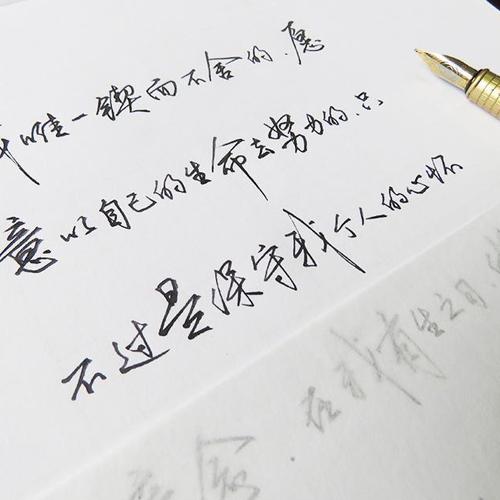 唯一锲而不舍的,愿
意以自己的生命去努力的,只
不过是保守我个人的心怀
念.在我有生之日